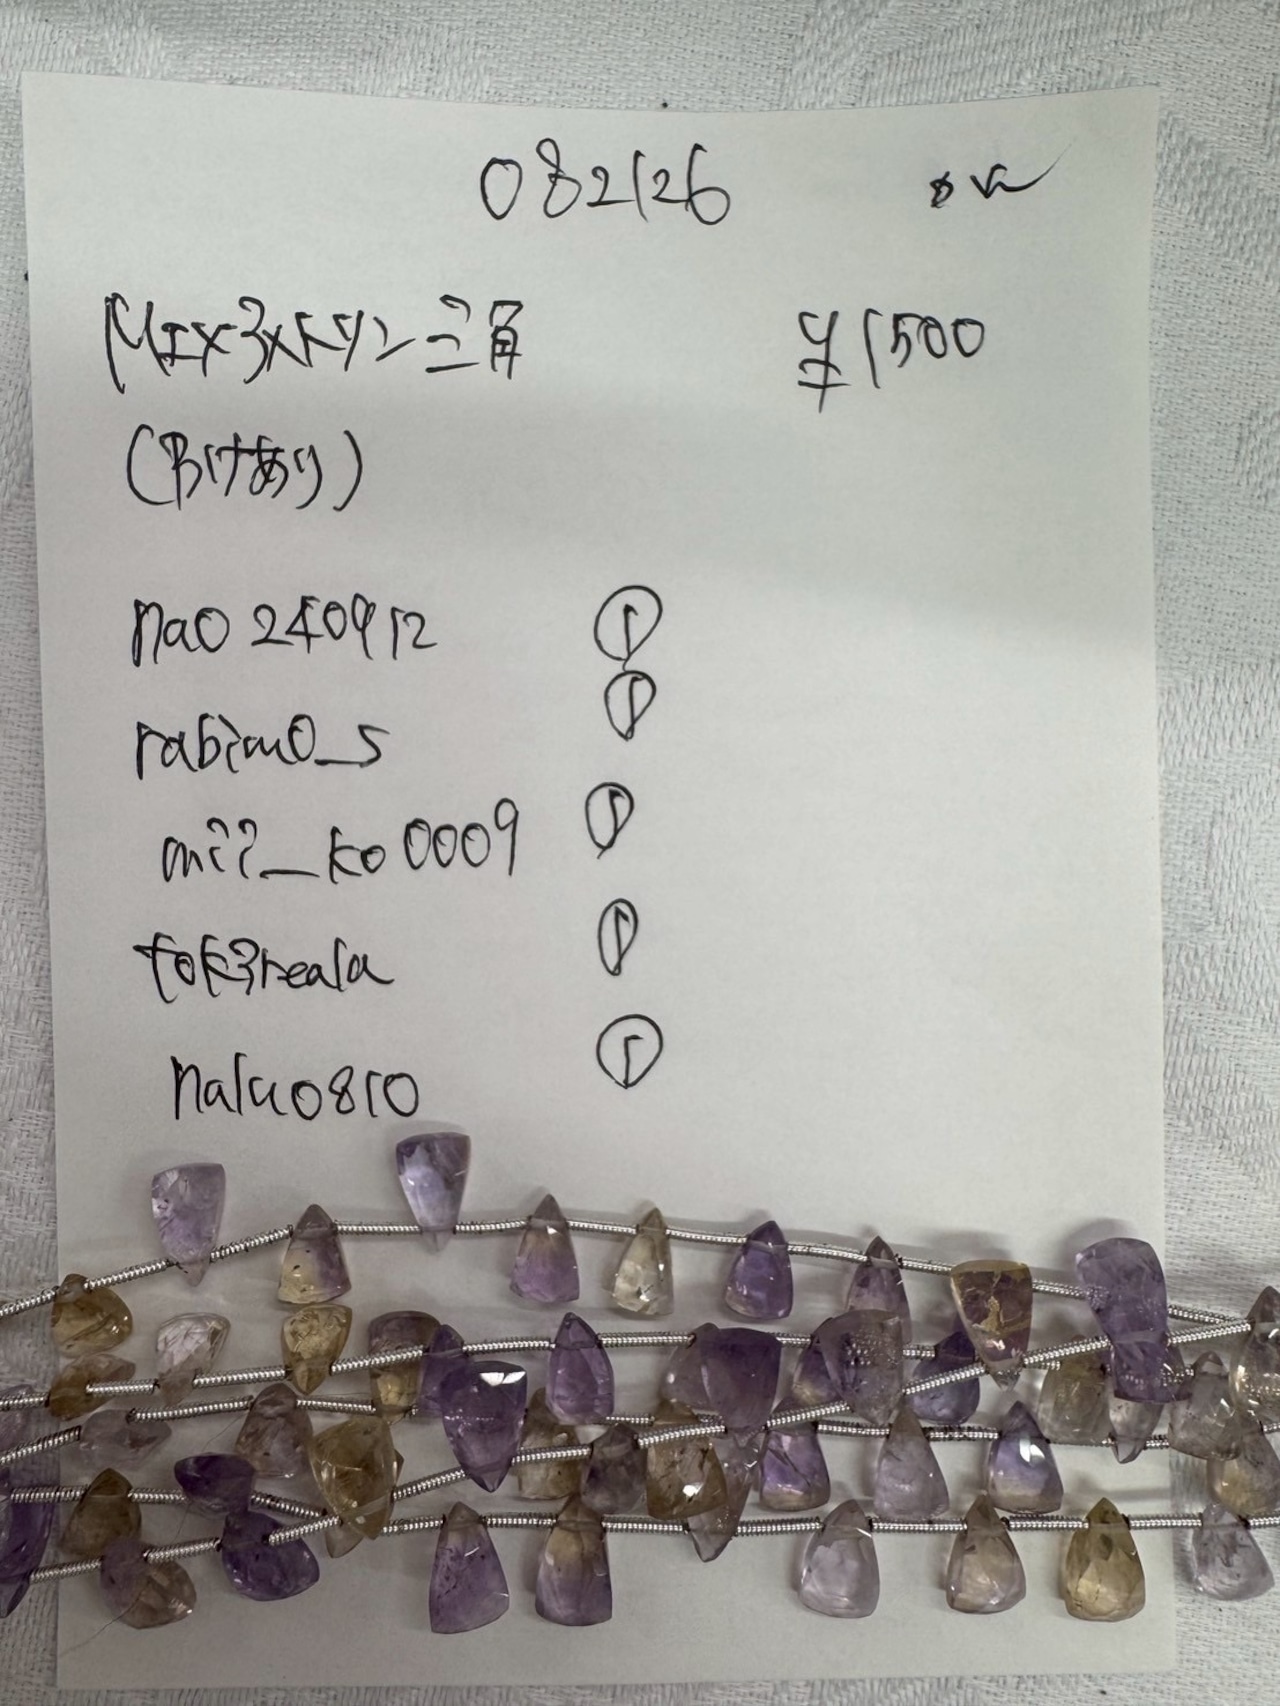 082126
MIXアメトリン三角 ¥1500
(欠けあり)
nao240912 ①
rabimo_s ①
mii_ko0009 ①
tokireala ①
nalu0810 ①